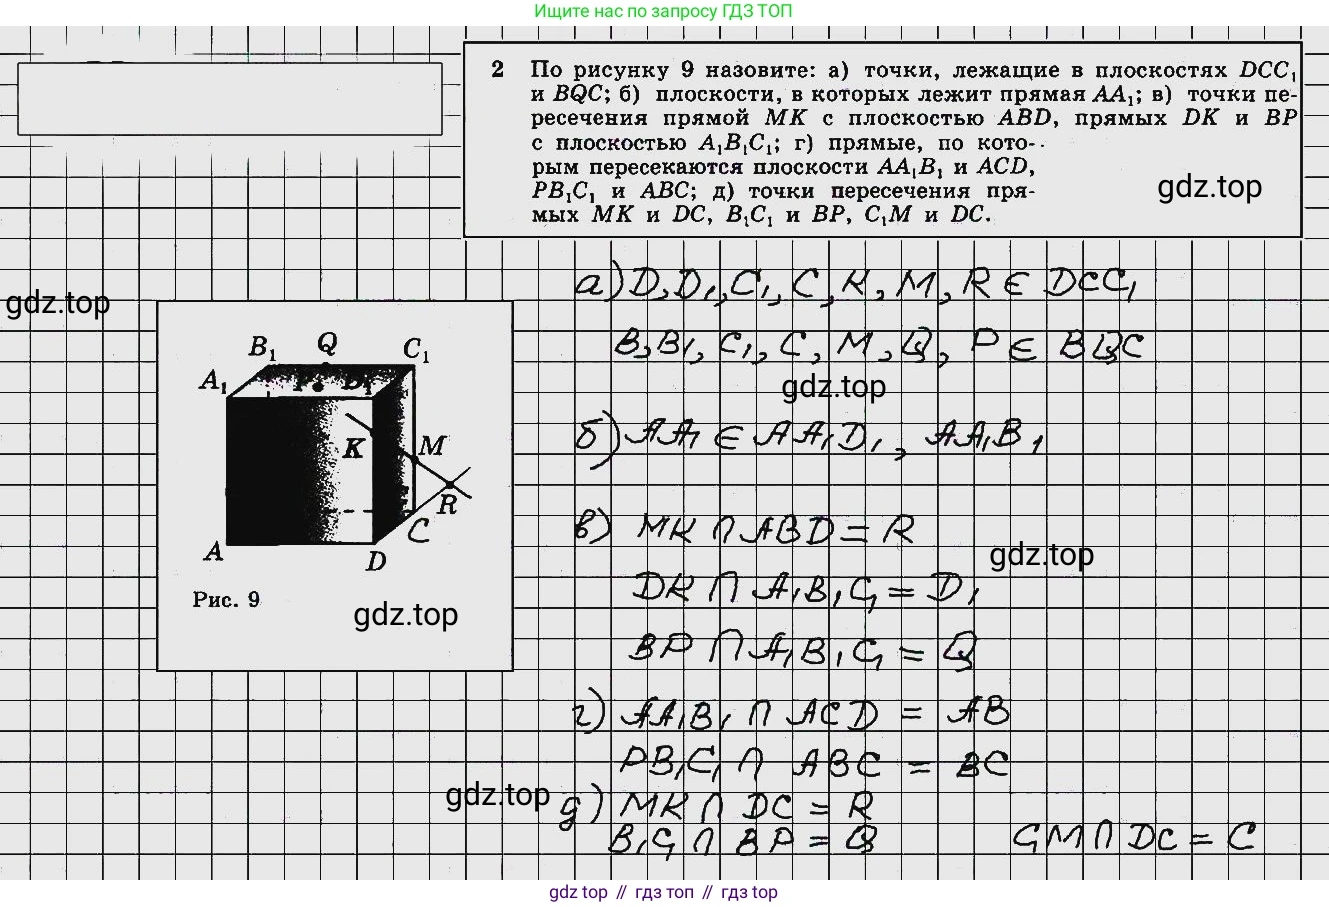 Ищите нас по запросу ГДЗ ТОП
2 По рисунку 9 назовите: а) точки, лежащие в плоскостях DCC₁
и BQC; б) плоскости, в которых лежит прямая AA₁; в) точки пе-
ресечения прямой MK с плоскостью ABD, прямых DK и BP
с плоскостью A₁B₁C₁; г) прямые, по кото-
рым пересекаются плоскости AA₁B₁ и ACD,
PB₁C₁ и ABC; д) точки пересечения пря-
мых MK и DC, B₁C₁ и BP, C₁M и DC.
gdz.top
а) D, D₁, C₁, C, K, M, R ∈ DCC₁
gdz.top
B, B₁, C₁, C, M, Q, P ∈ BQC
gdz.top
B₁ Q C₁
A₁ P D₁
K M
R
C
A D
Рис. 9
gdz.top
б) AA₁ ∈ AA₁D₁, AA₁B₁
в) MK ∩ ABD = R
gdz.top
DK ∩ A₁B₁C₁ = D₁
BP ∩ A₁B₁C₁ = Q
г) AA₁B₁ ∩ ACD = AB
PB₁C₁ ∩ ABC = BC
gdz.top
д) MK ∩ DC = R
B₁C₁ ∩ BP = Q C₁M ∩ DC = C
gdz top // гдз топ // gdz top